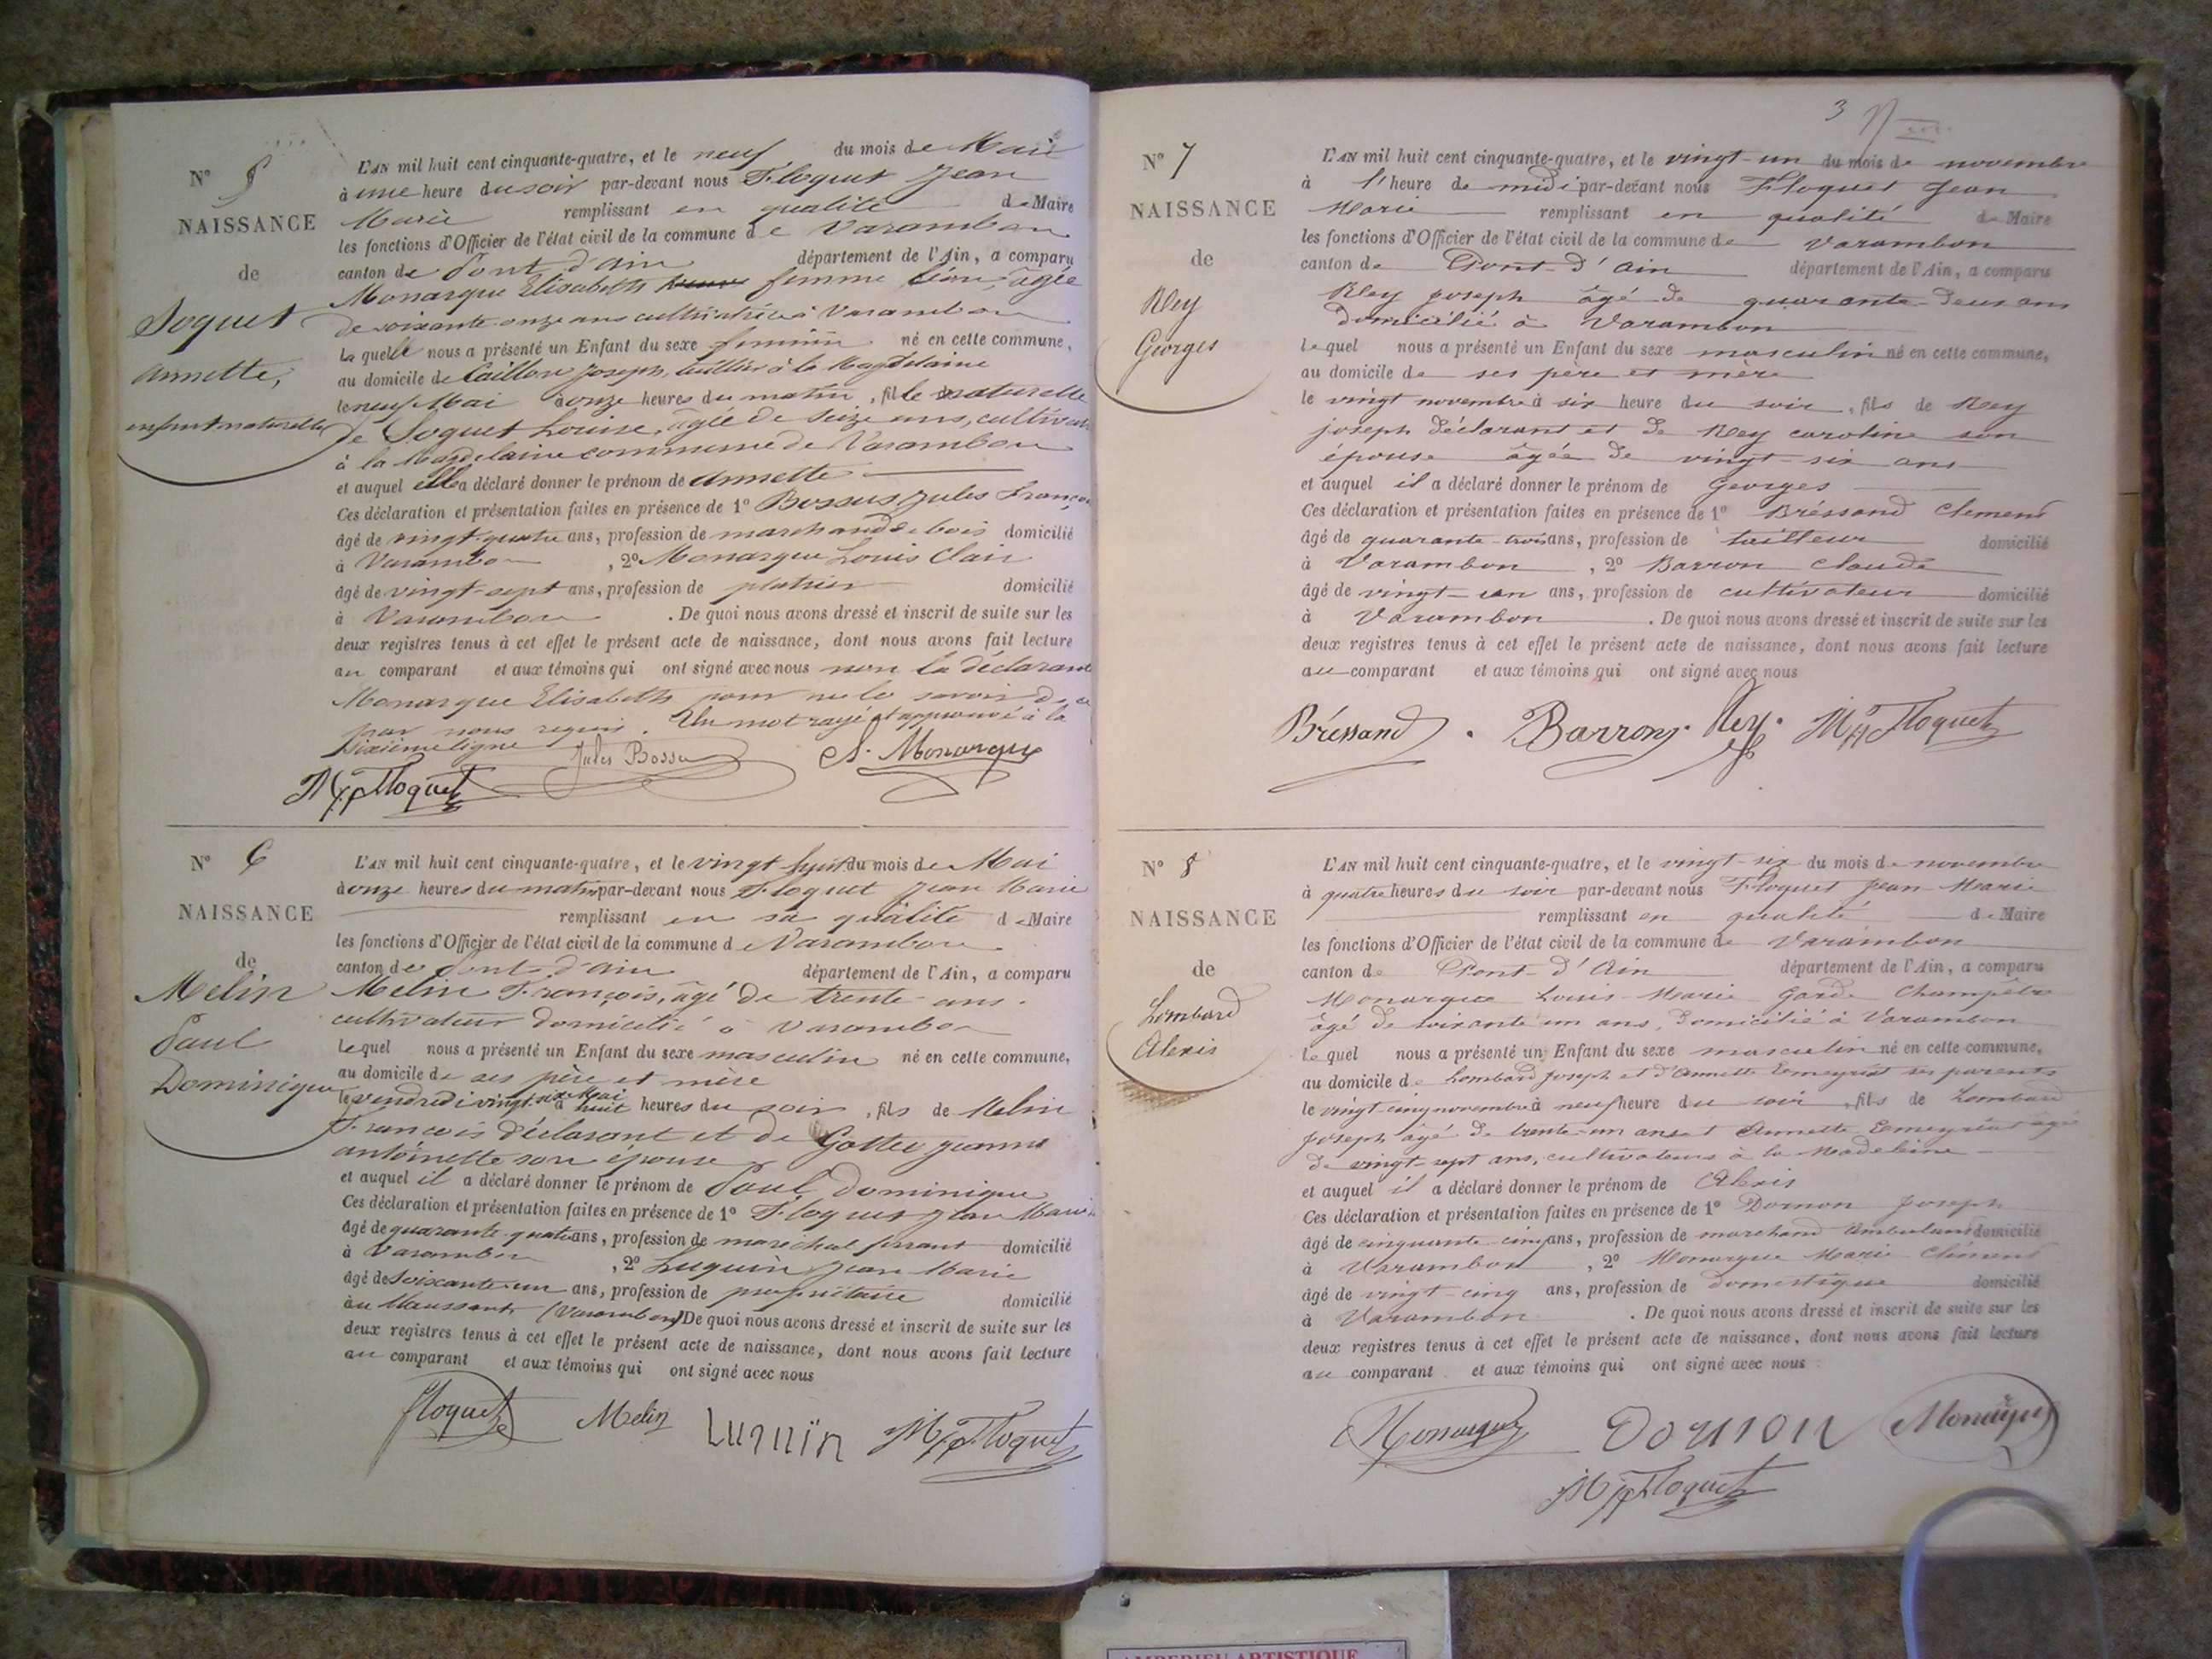 N° 5
NAISSANCE
de
Soquet
Annette,
enfant naturelle
L'AN mil huit cent cinquante-quatre, et le neuf du mois de Mai
à une heure du soir par-devant nous Floquet Jean
Marie remplissant en qualité de Maire
les fonctions d'Officier de l'état civil de la commune de Varambon
canton de Pont d'ain département de l'Ain, a comparu
Monarque Elisabeth femme âgée
de soixante onze ans cultivatrice à Varambon
La quelle nous a présenté un Enfant du sexe feminin né en cette commune,
au domicile de Caillon Joseph, à la Magdelaine
le neuf Mai à onze heures du matin, fille naturelle
de Soquet Louise, âgée de seize ans,
à la Magdelaine commune de Varambon
et auquel elle a déclaré donner le prénom de Annette
Ces déclaration et présentation faites en présence de 1° Bossus Jules
âgé de vingt-quatre ans, profession de marchand de bois domicilié
à Varambon, 2° Monarque Louis Clair
âgé de vingt-sept ans, profession de platrier domicilié
à Varambon. De quoi nous avons dressé et inscrit de suite sur les
deux registres tenus à cet effet le présent acte de naissance, dont nous avons fait lecture
au comparant et aux témoins qui ont signé avec nous non la déclarante
Monarque Elisabeth pour ne le savoir de ce
par nous requis. Un mot rayé et approuvé à la
sixième ligne
Jules Bossu
Monarque
Floquet
N° 6
NAISSANCE
de
Melin
Paul
Dominique
L'AN mil huit cent cinquante-quatre, et le vingt huit du mois de Mai
à onze heures du matin par-devant nous Floquet Jean Marie
remplissant en sa qualité de Maire
les fonctions d'Officier de l'état civil de la commune de Varambon
canton de Pont d'ain département de l'Ain, a comparu
Melin François, âgé de trente ans
cultivateur domicilié à Varambon
Lequel nous a présenté un Enfant du sexe masculin né en cette commune,
au domicile de ses père et mère
le vendredi vingt six Mai à huit heures du soir, fils de Melin
François déclarant et de Jeanne
antoinette son épouse
et auquel il a déclaré donner le prénom de Paul Dominique
Ces déclaration et présentation faites en présence de 1° Floquet Jean Marie
âgé de quarante-quatre ans, profession de maréchal ferrant domicilié
à Varambon, 2° Luquin Jean Marie
âgé de soixante un ans, profession de propriétaire domicilié
au (Varambon) De quoi nous avons dressé et inscrit de suite sur les
deux registres tenus à cet effet le présent acte de naissance, dont nous avons fait lecture
au comparant et aux témoins qui ont signé avec nous
Floquet Melin Luquin Floquet
3
N° 7
NAISSANCE
de
Rey
Georges
L'AN mil huit cent cinquante-quatre, et le vingt-un du mois de novembre
à l'heure de midi par-devant nous Floquet Jean
Marie remplissant en qualité de Maire
les fonctions d'Officier de l'état civil de la commune de Varambon
canton de Pont-d'ain département de l'Ain, a comparu
Rey joseph âgé de quarante-deux ans
domicilié à Varambon
lequel nous a présenté un Enfant du sexe masculin né en cette commune,
au domicile de ses père et mère
le vingt novembre à six heure du soir, fils de Rey
joseph déclarant et de Rey caroline son
épouse âgée de vingt-six ans
et auquel il a déclaré donner le prénom de Georges
Ces déclaration et présentation faites en présence de 1° Bréssand Clement
âgé de quarante-trois ans, profession de tailleur domicilié
à Varambon, 2° Barron Claude
âgé de vingt-un ans, profession de cultivateur domicilié
à Varambon. De quoi nous avons dressé et inscrit de suite sur les
deux registres tenus à cet effet le présent acte de naissance, dont nous avons fait lecture
au comparant et aux témoins qui ont signé avec nous
Bréssand. Barron. Rey. Floquet
N° 8
NAISSANCE
de
Lombard
Alexis
L'AN mil huit cent cinquante-quatre, et le vingt-six du mois de novembre
à quatre heures du soir par-devant nous Floquet Jean-Marie
remplissant en qualité de Maire
les fonctions d'Officier de l'état civil de la commune de Varambon
canton de Pont-d'Ain département de l'Ain, a comparu
Monarque Louis-Marie Garde Champêtre
âgé de soixante un ans, domicilié à Varambon
le quel nous a présenté un Enfant du sexe masculin né en cette commune,
au domicile de Lombard Joseph et d'Annette Esmeyriat ses parents
le vingt-cinq novembre à neuf heure du soir, fils de Lombard
Joseph âgé de trente-un ans et Annette Esmeyriat âgée
de vingt-sept ans, cultivateurs à la Madeleine
et auquel il a déclaré donner le prénom de Alexis
Ces déclaration et présentation faites en présence de 1° Dornon Joseph
âgé de cinquante-cinq ans, profession de marchand ambulant domicilié
à Varambon, 2° Monarque Marie Clément
âgé de vingt-cinq ans, profession de Domestique domicilié
à Varambon. De quoi nous avons dressé et inscrit de suite sur les
deux registres tenus à cet effet le présent acte de naissance, dont nous avons fait lecture
au comparant et aux témoins qui ont signé avec nous
Monarque Dornon Monarque
Floquet
AMBERIEU ARTISTIQUE